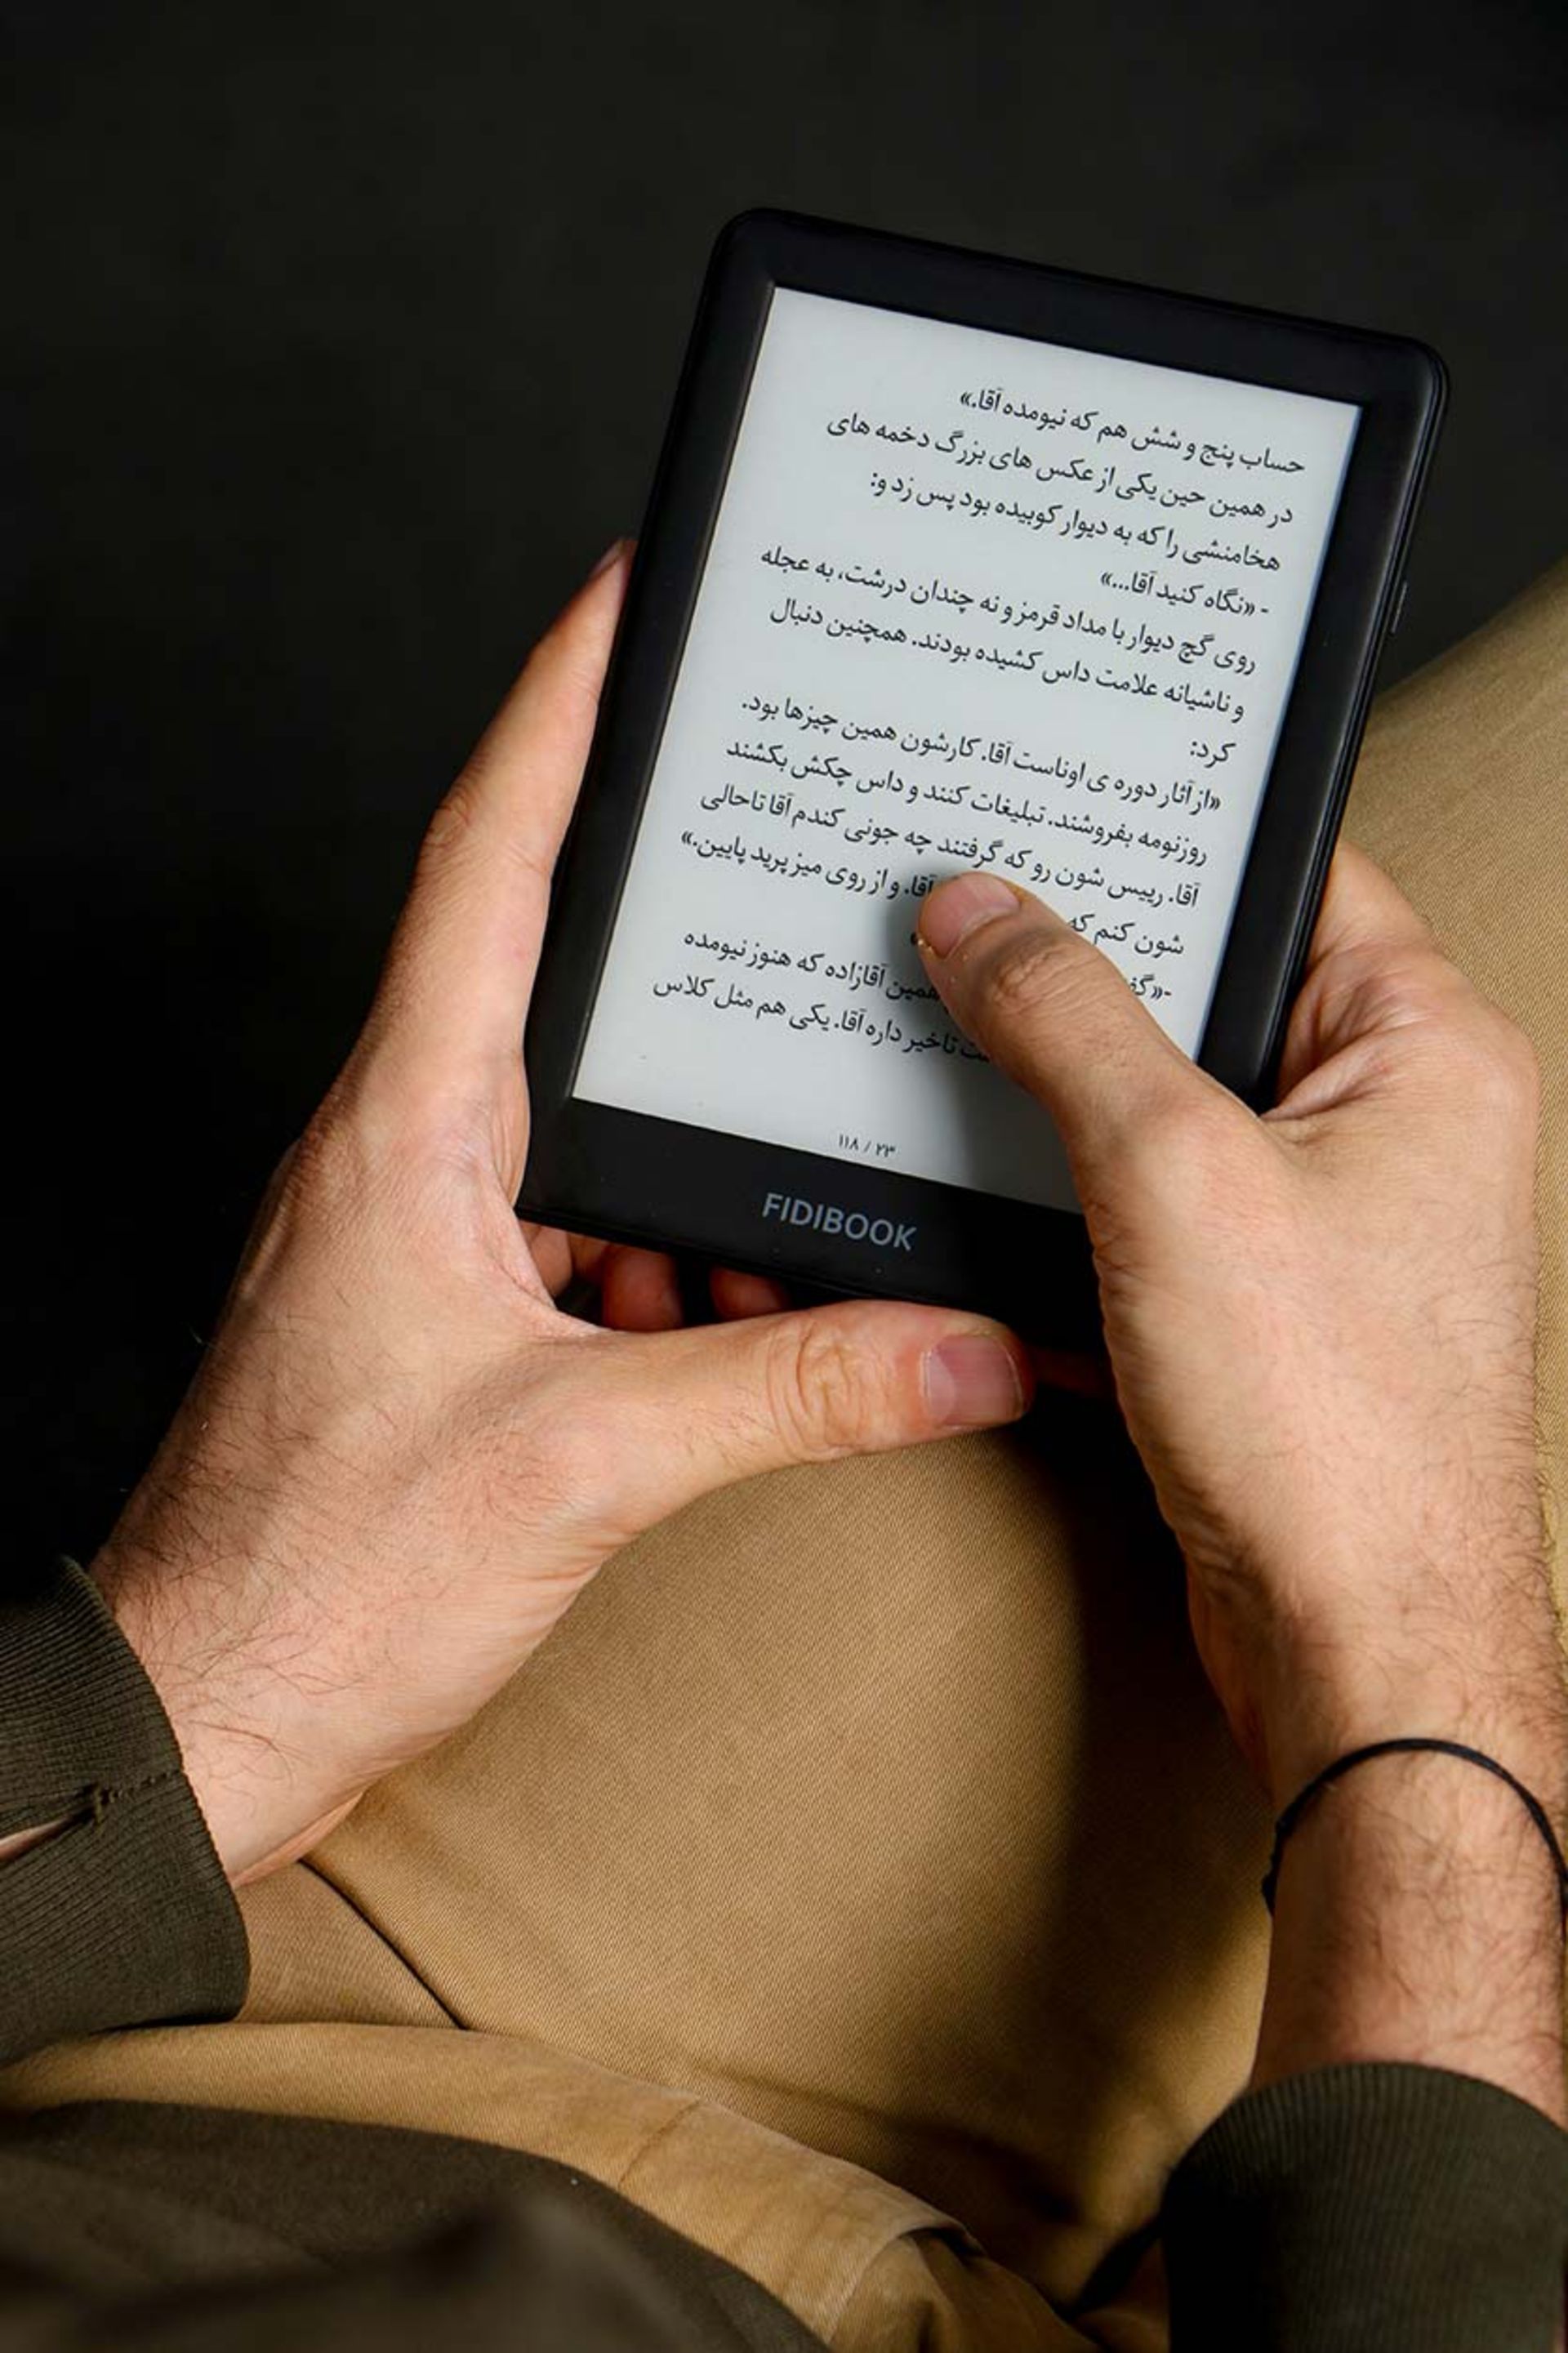 حساب پنج و شش هم که نیومده آقا.»
در همین حین یکی از عکس های بزرگ دخمه های
هخامنشی را که به دیوار کوبیده بود پس زد و:
- «نگاه کنید آقا...»
روی گچ دیوار با مداد قرمز و نه چندان درشت، به عجله
و ناشیانه علامت داس کشیده بودند. همچنین دنبال
کرد:
«از آثار دوره ی اوناست آقا. کارشون همین چیزها بود.
روزنومه بفروشند. تبلیغات کنند و داس چکش بکشند
آقا. رییس شون رو که گرفتند چه جونی کندم آقا تاحالی
شون کنم که آقا. و از روی میز پرید پایین.»
همین آقازاده که هنوز نیومده
تاخیر داره آقا. یکی هم مثل کلاس
۲۳ / ۱۱۸
FIDIBOOK